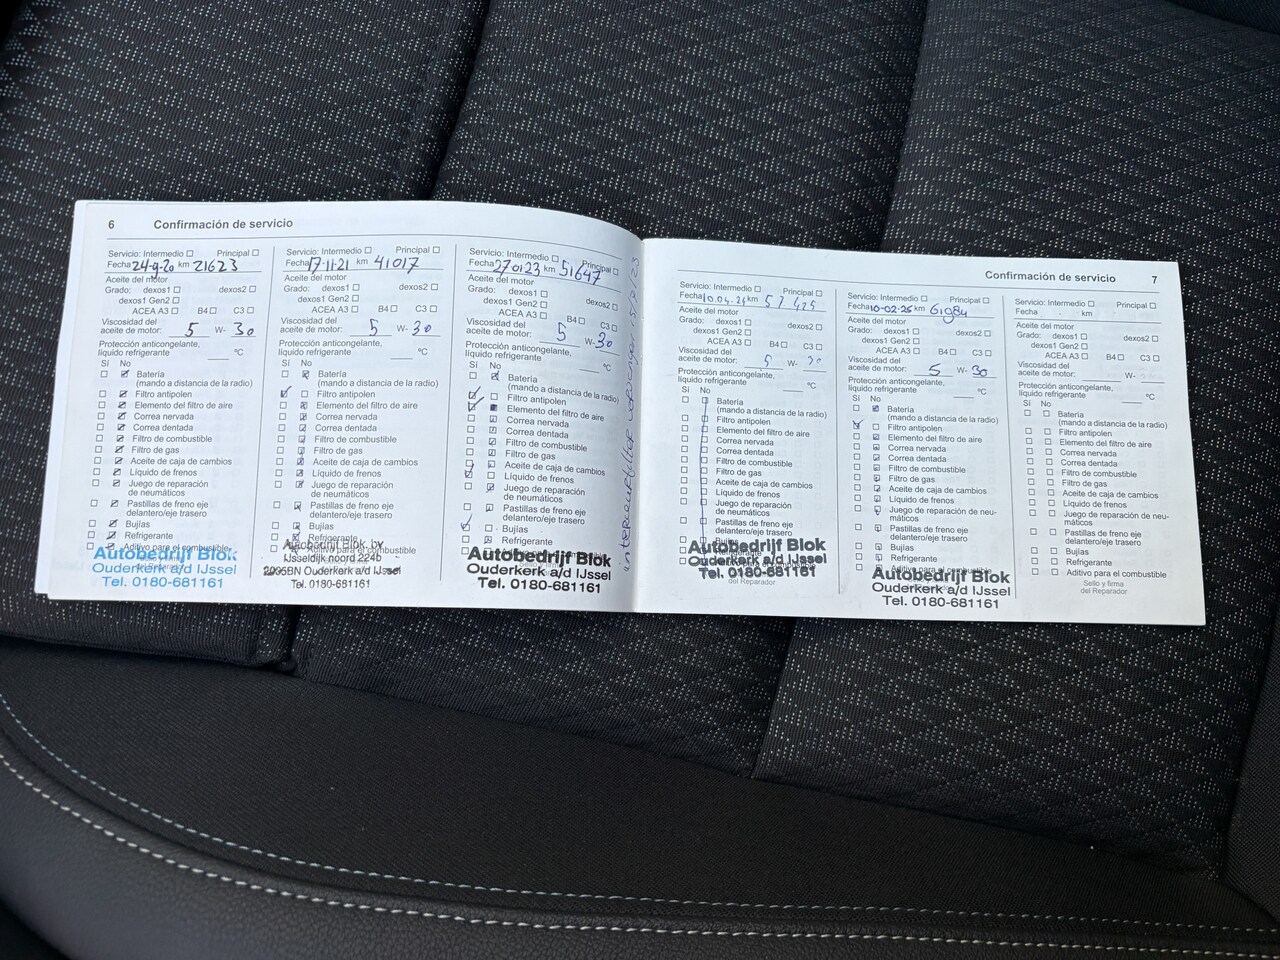 6 Confirmación de servicio
Servicio: Intermedio Principal
Fecha 24-9-20 km 21623
Aceite del motor
Grado: dexos1 dexos2
dexos1 Gen2
ACEA A3 B4 C3
Viscosidad del
aceite de motor: 5 W- 30
Protección anticongelante,
líquido refrigerante °C
Sí No
Batería
(mando a distancia de la radio)
Filtro antipolen
Elemento del filtro de aire
Correa nervada
Correa dentada
Filtro de combustible
Filtro de gas
Aceite de caja de cambios
Líquido de frenos
Juego de reparación
de neumáticos
Pastillas de freno eje
delantero/eje trasero
Bujías
Refrigerante
Aditivo para el combustible
Autobedrijf Blok
Ouderkerk a/d IJssel
Tel. 0180-681161
Servicio: Intermedio Principal
Fecha 17-11-21 km 41017
Aceite del motor
Grado: dexos1 dexos2
dexos1 Gen2
ACEA A3 B4 C3
Viscosidad del
aceite de motor: 5 W- 30
Protección anticongelante,
líquido refrigerante °C
Sí No
Batería
(mando a distancia de la radio)
Filtro antipolen
Elemento del filtro de aire
Correa nervada
Correa dentada
Filtro de combustible
Filtro de gas
Aceite de caja de cambios
Líquido de frenos
Juego de reparación
de neumáticos
Pastillas de freno eje
delantero/eje trasero
Bujías
Refrigerante
Aditivo para el combustible
Autobedrijf Blok bv
IJsseldijk noord 224b
Ouderkerk a/d IJssel
Tel. 0180-681161
Servicio: Intermedio Principal
Fecha 270123 km 51647
Aceite del motor
Grado: dexos1 dexos2
dexos1 Gen2
ACEA A3 B4 C3
Viscosidad del
aceite de motor: 5 W- 30
Protección anticongelante,
líquido refrigerante °C
Sí No
Batería
(mando a distancia de la radio)
Filtro antipolen
Elemento del filtro de aire
Correa nervada
Correa dentada
Filtro de combustible
Filtro de gas
Aceite de caja de cambios
Líquido de frenos
Juego de reparación
de neumáticos
Pastillas de freno eje
delantero/eje trasero
Bujías
Refrigerante
Autobedrijf Blok
Ouderkerk a/d IJssel
Tel. 0180-681161
Confirmación de servicio 7
Servicio: Intermedio Principal
Fecha 10.04.24 km 57425
Aceite del motor
Grado: dexos1 dexos2
dexos1 Gen2
ACEA A3 B4 C3
Viscosidad del
aceite de motor: 5 W- 30
Protección anticongelante,
líquido refrigerante °C
Sí No
Batería
(mando a distancia de la radio)
Filtro antipolen
Elemento del filtro de aire
Correa nervada
Correa dentada
Filtro de combustible
Filtro de gas
Aceite de caja de cambios
Líquido de frenos
Juego de reparación
de neumáticos
Pastillas de freno eje
delantero/eje trasero
Bujías
Autobedrijf Blok
Ouderkerk a/d IJssel
Tel. 0180-681161
del Reparador
Servicio: Intermedio Principal
Fecha 10-02-25 km 61984
Aceite del motor
Grado: dexos1 dexos2
dexos1 Gen2
ACEA A3 B4 C3
Viscosidad del
aceite de motor: 5 W- 30
Protección anticongelante,
líquido refrigerante °C
Sí No
Batería
(mando a distancia de la radio)
Filtro antipolen
Elemento del filtro de aire
Correa nervada
Correa dentada
Filtro de combustible
Filtro de gas
Aceite de caja de cambios
Líquido de frenos
Juego de reparación de neu-
máticos
Pastillas de freno eje
delantero/eje trasero
Bujías
Refrigerante
Aditivo para el combustible
Autobedrijf Blok
Ouderkerk a/d IJssel
Tel. 0180-681161
Servicio: Intermedio Principal
Fecha km
Aceite del motor
Grado: dexos1 dexos2
dexos1 Gen2
ACEA A3 B4 C3
Viscosidad del
aceite de motor: W-
Protección anticongelante,
líquido refrigerante °C
Sí No
Batería
(mando a distancia de la radio)
Filtro antipolen
Elemento del filtro de aire
Correa nervada
Correa dentada
Filtro de combustible
Filtro de gas
Aceite de caja de cambios
Líquido de frenos
Juego de reparación de neu-
máticos
Pastillas de freno eje
delantero/eje trasero
Bujías
Refrigerante
Aditivo para el combustible
Sello y firma
del Reparador